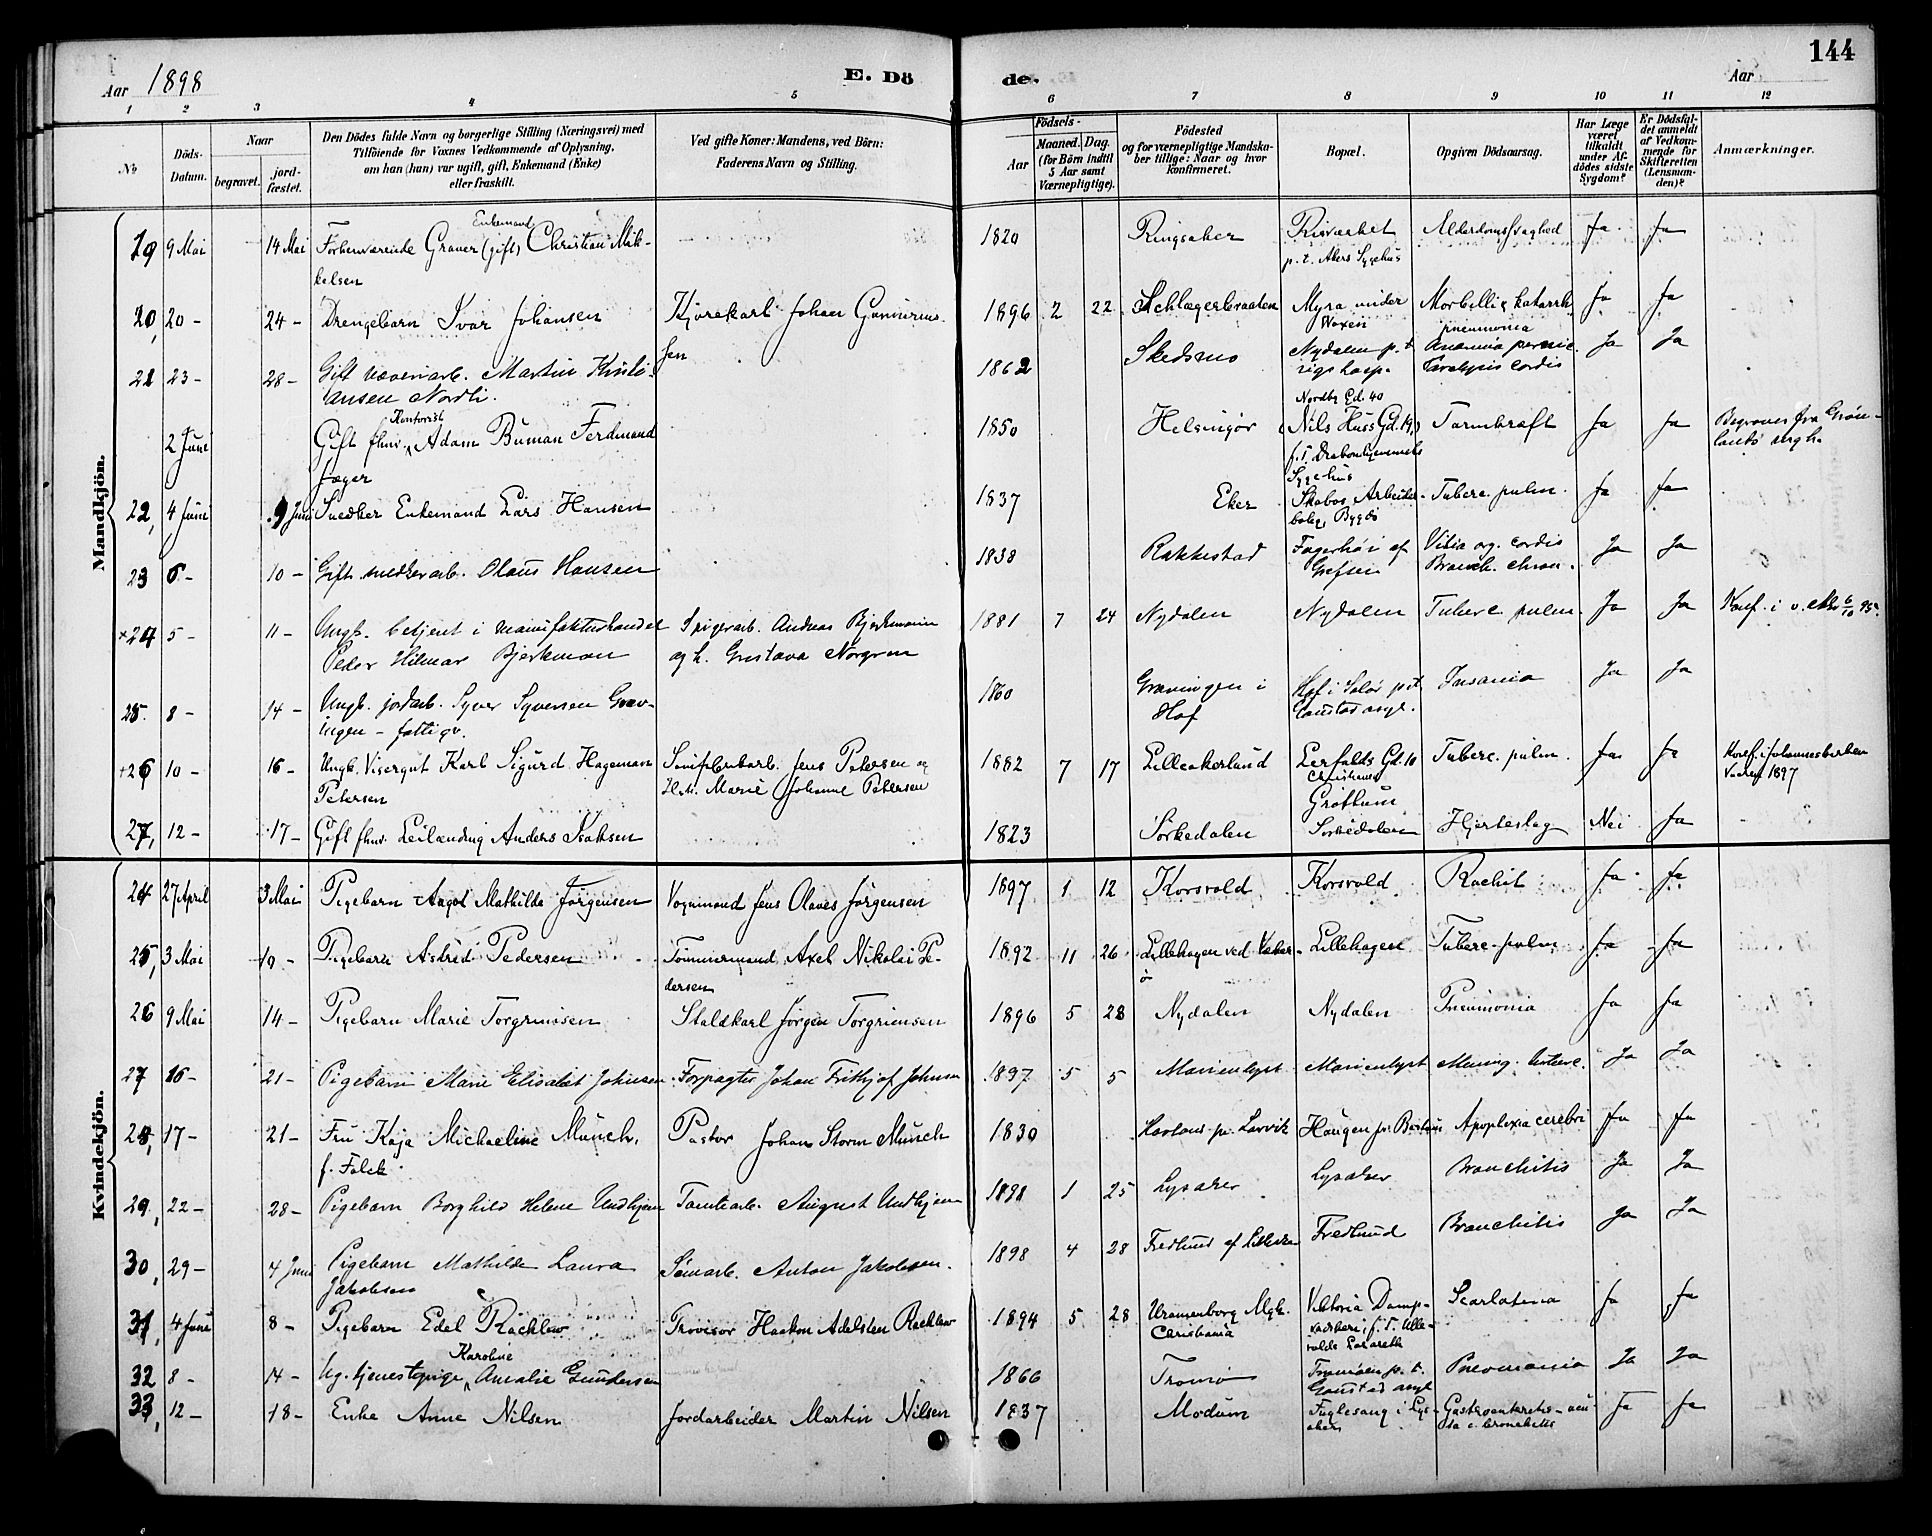 144
Aar 1898
E. Dö
de.
Aar
1 2 3 4 5 6 7 8 9 10 11 12
No
Döds-Datum.
Naar
begravet.
jord-fæstet.
Den Dödes fulde Navn og borgerlige Stilling (Næringsvei) med
Tilföiende for Voxnes Vedkommende af Oplysning,
om han (hun) var ugift, gift, Enkemand (Enke)
eller fraskilt.
Ved gifte Koner: Mandens, ved Börn:
Faderens Navn og Stilling.
Födsels-
Aar
Maaned. Dag.
(for Börn indtil
5 Aar samt
Værnepligtige).
Födested
og for værnepligtige Mandska-
ber tillige: Naar og hvor
konfirmeret.
Bopæl.
Opgiven Dödsaarsag.
Har Læge
været
tilkaldt
under Af-
dödes sidste
Sygdom?
Er Dödsfal-
det anmeldt
af Vedkom-
mende for
Skifteretten
(Lensman-
den)?
Anmærkninger.
Mandkjön.
19 9 Mai 14 Mai Forhenværende Graver (gift) Enkemand Christian Mik-
kelsen
1820 Ringsaker Risværket
p. t. Akers Sygehus Alderdomssvaghed Ja Ja
20, 20 - 24 - Drengebarn Ivar Johansen Kjørekarl Johan Gunnerius-
sen
1896 2 22 Schlægerbraaten Myra under
Voxen Morbilli & katarrh.
pneumonia Ja Ja
21 23 - 28 - Gift Væveriarb. Martin Kristi-
ansen Nordli.
1862 Skedsmo Nydalen p. t
rigshosp. Anæmia pernic.
Paralysis cordis Ja Ja
2 Juni Gift fhnv. Kontorist Adam Buman Ferdinand
Jæger
1850 Helsingør Nordby Gd. 40
(Nils Huss Gd. 19,)
p. T. Sygehus Tarmkræft Ja Ja Begraves fra Grøn-
lands
22, 4 Juni 9 Juni Snedker Enkemand Lars Hansen
1837 Eker Skabos Arbeider-
bolig, Bygdø Tuberc. pulm. Ja Ja
23 6 - 10 - Gift snedkerarb. Olaus Hansen
1838 Rakkestad Fagerhøi af
Grefsen Vitia org. cordis
Bronch. chron. Ja Ja
×24 5 - 11 - Ungk. betjent i manufakturhandel
Peder Hilmar Bjerkman Spigerarb. Andreas Bjerkmann
og h. Gustava Norgren
1881 7 24 Nydalen Nydalen Tuberc. pulm Ja Ja Konf. i v. Aker 6/10 95.
25. 8 - 14 - Ungk. jordarb. Syver Syversen Grav-
ingen - fattigv.
1860 Gravingen i
Hof Hof i Solør p.t.
Gaustad asyl. Insania Ja Ja
+26 10 - 16 - Ungk. Visergut Karl Sigurd Hageman
Petersen Jens Petersen og
Marie Johanne Petersen
1882 7 17 Lilleakerlund Lerfalds Gd. 10
Christiania Tuberc. pulm. Ja Ja Konf. i Johanneskirken
Vaaren 1897
27, 12 - 17 - Gift fhnv. Leilænding Anders Isaksen
1823 Sørkedalen Grøttum
Sørkedalen Hjerteslag Nei Ja
Kvindekjön.
24 27 April 3 Mai Pigebarn Aagot Mathilde Jørgensen Vognmand Jens Olaves Jørgensen
1897 1 12 Korsvold Korsvold Rachit Ja Ja
25, 3 Mai 10 - Pigebarn Astrid Pedersen Tømmermand Axel Nikolai Pe-
dersen
1892 11 26 Lillehagen ved Vækker-
ø Lillehagen Tuberc. pulm Ja Ja
26 9 Mai 14 - Pigebarn Marie Torgrimsen Staldkarl Jørgen Torgrimsen
1896 5 28 Nydalen Nydalen Pneumonia Ja Ja
27 16 - 21 - Pigebarn Marie Elisabet Johnsen Forpagter Johan Frithjof Johnsen
1897 5 5 Marienlyst Marienlyst Mening. tuberc. Ja Ja
28, 17 - 21 - Fru Kaja Michaeline Münch,
f. Falck. Pastor Johan Storm Münch
1830 pr. Larvik Haugen pr. Apoplexia cerebri Ja Ja
29, 22 - 28 - Pigebarn Borghild Helene Undhjem Tomtearb. August Undhjem
1898 1 25 Lysaker Lysaker Bronchitis Ja Ja
30, 29 - 4 Juni Pigebarn Mathilde Laura
Jakobsen Sømarb. Anton Jakobsen.
1898 4 28 Fredlund af Fredlund Bronchitis Ja Ja
31, 4 Juni 8 - Pigebarn Edel Racklew Provisor Haakon Adelsten Racklew
1894 5 28 Uranienborg Mgh.
Christiania Viktoria Damp-
vaskeri, p. T. Ulle-
volds Lazareth Scarlatina Ja Ja
32 8 - 14 - Ug. tjenestepige Karoline Amalie Gundersen
1866 Tromø Tromøen p. t.
Gaustad asyl Pneumonia Ja Ja
33, 12 - 18 - Enke Anne Nilsen Jordarbeider Martin Nilsen
1837 Modum Fuglesang i Lys-
aker Gastroenteritis acu-
ta c. bronchitis Ja Ja